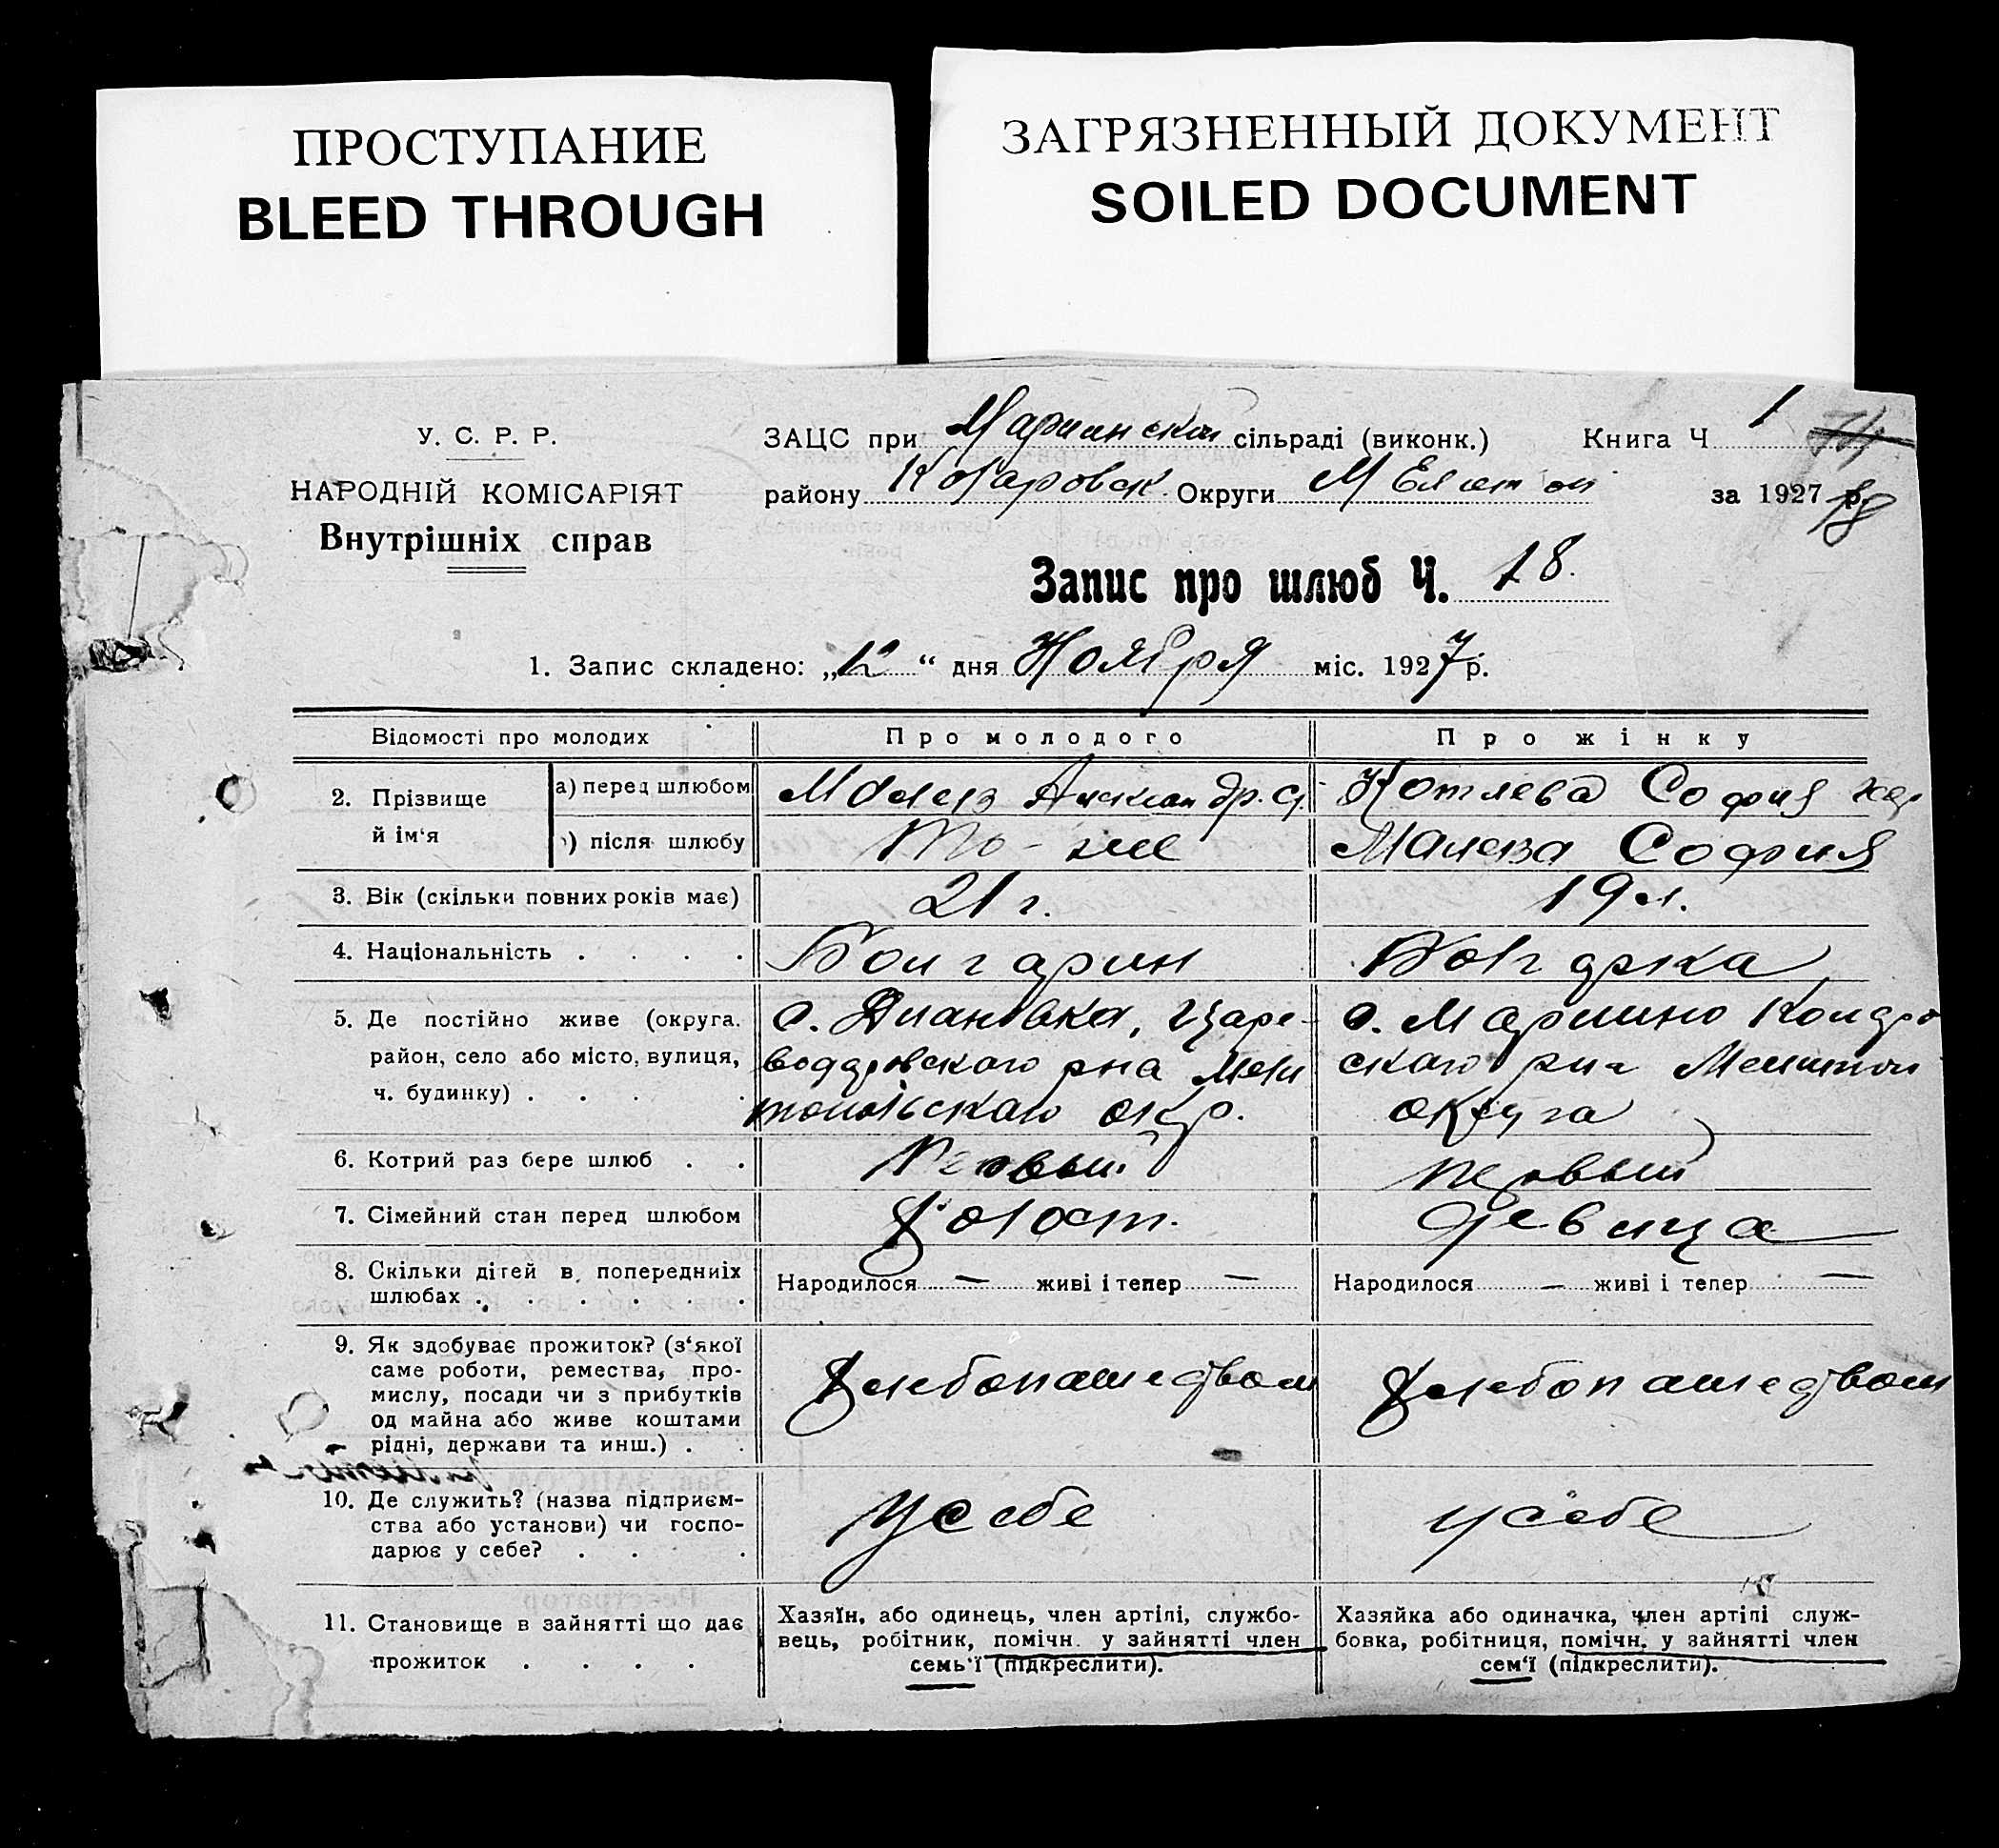 ПРОСТУПАНИЕ
BLEED THROUGH
ЗАГРЯЗНЕННЫЙ ДОКУМЕНТ
SOILED DOCUMENT
У. С. Р. Р.
НАРОДНІЙ КОМІСАРІЯТ
Внутрішніх справ
ЗАЦС при сільраді (виконк.) Книга Ч 1
району Округи за 1927 р.
Запис про шлюб Ч. 18.
1. Запис складено: „12“ дня Ноября міс. 1927 р.
Відомості про молодих
Про молодого
Про жінку
2. Прізвище й ім‘я
а) перед шлюбом
Котлева София
) після шлюбу
То-же
Малева София
3. Вік (скільки повних років має)
21 г.
19 л.
4. Національність . . . .
Болгарин
Болгарка
5. Де постійно живе (округа.
район, село або місто, вулиця,
ч. будинку) . . . .
с. Диановка, Царе-
водаровского рна Мели
топольскаго окр.
с. Марино
скаго рна Мелитоп
округа
6. Котрий раз бере шлюб . .
Первый
первый
7. Сімейний стан перед шлюбом
Холост.
Девица
8. Скільки дітей в попередниіх
шлюбах . . . . . .
Народилося — живі і тепер —
Народилося — живі і тепер —
9. Як здобуває прожиток? (з‘якої
саме роботи, ремества, про-
мислу, посади чи з прибутків
од майна або живе коштами
рідні, держави та инш.) . .
Хлебопашеством
Хлебопашеством
10. Де служить? (назва підприєм-
ства або установи) чи госпо-
дарює у себе? . . .
У себе
у себе
11. Становище в зайнятті що дає
прожиток . . . .
Хазяїн, або одинець, член артілі, службо-
вець, робітник, помічн. у зайнятті член
семь‘ї (підкреслити).
Хазяйка або одиначка, член артілі служ-
бовка, робітниця, помічн. у зайнятті член
сем‘ї (підкреслити).